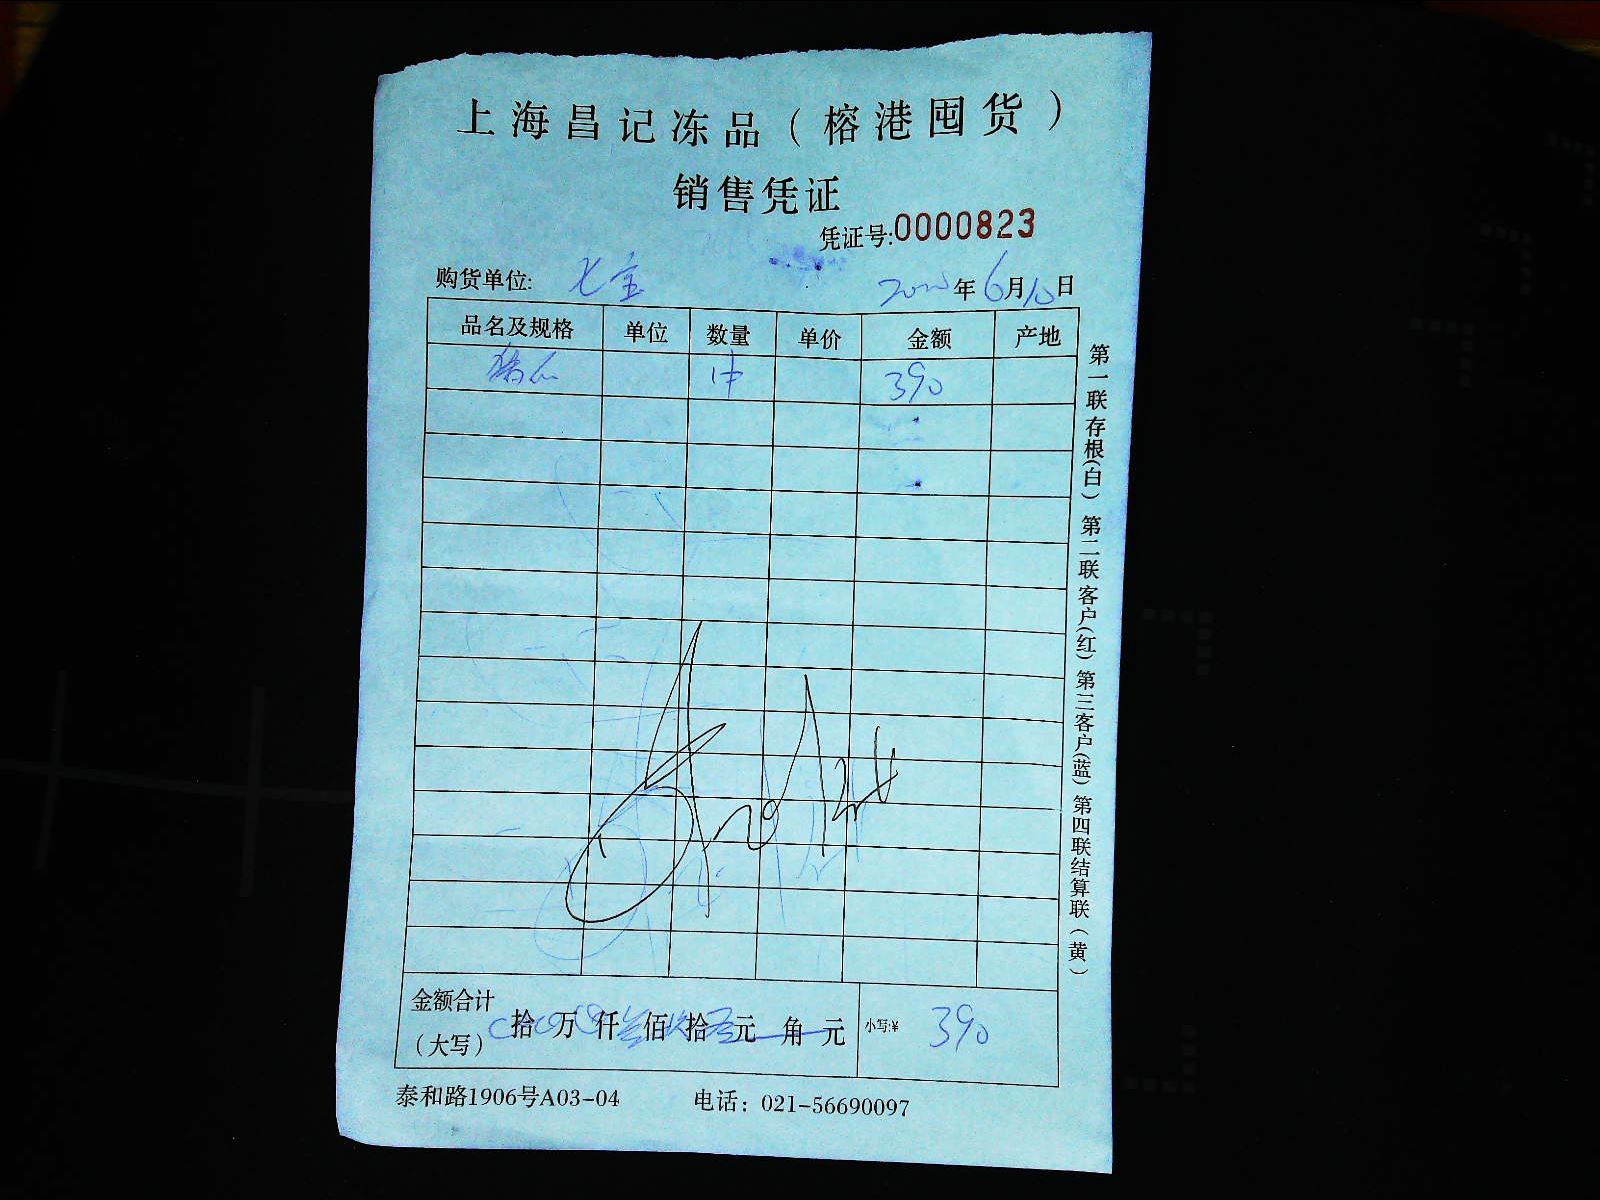 上海昌记冻品（榕港囤货）
销售凭证
凭证号:0000823
购货单位: 七宝 2020年6月10日
品名及规格 单位 数量 单价 金额 产地
1件 390
金额合计
（大写） 拾 万 仟叁佰玖拾零元 角 元 小写:¥ 390
泰和路1906号A03-04 电话：021-56690097
第一联存根(白) 第二联客户(红) 第三客户(蓝) 第四联结算联(黄)